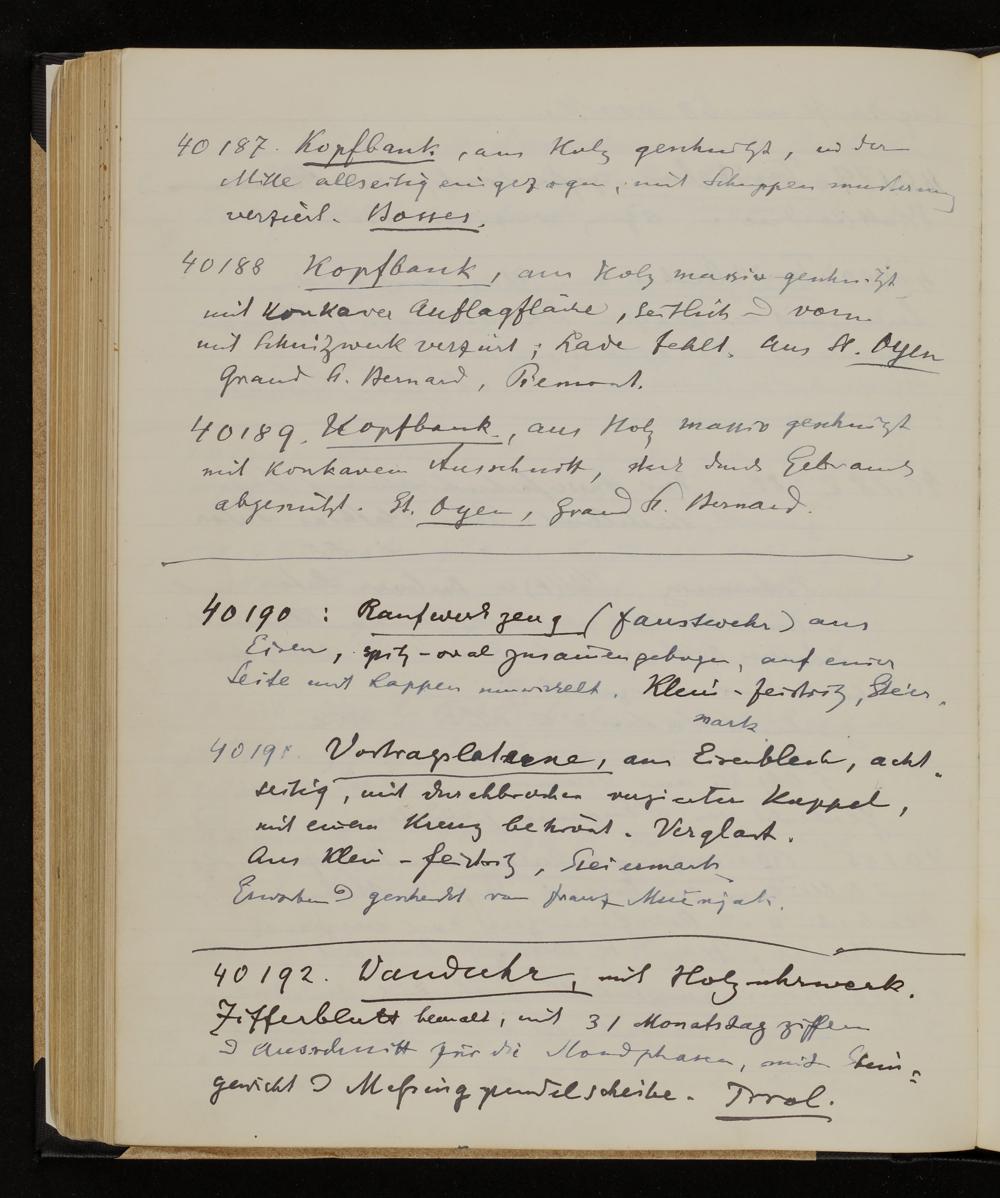 40187. Kopfbank, aus Holz geschnitzt, in der
Mitte allseitig eingezogen, mit Schuppenmusterung
verziert. Bosses.
40188 Kopfbank, aus Holz massiv geschnitzt
mit konkaver Auflagfläche, seitlich & vorn
mit Schnitzwerk verziert; Lade fehlt. Aus St. Oyen
Grand St. Bernard, Piemont.
40189. Kopfbank, aus Holz massiv geschnitzt
mit konkavem Ausschnitt, stark durch Gebrauch
abgenützt. St. Oyen, Grand St. Bernard.
40190: Raufwerkzeug (Faustwehr) aus
Eisen, spitz-oval zusammengebogen, auf einer
Seite mit Lappen umwickelt. Klein-Feistritz, Steier-
mark
40191. Vortragslaterne, aus Eisenblech, acht-
seitig, mit durchbrochen verzierter Kuppel,
mit einem Kreuz bekrönt. Verglast.
Aus Klein-Feistritz, Steiermark
Erworben & geschenkt von Franz
40192. Wanduhr, mit Holzuhrwerk.
Zifferblatt bemalt, mit 31 Monatstagziffern
& Ausschnitt für die Mondphasen, mit Stein-
gewicht & Messingpendelscheibe. Tirol.